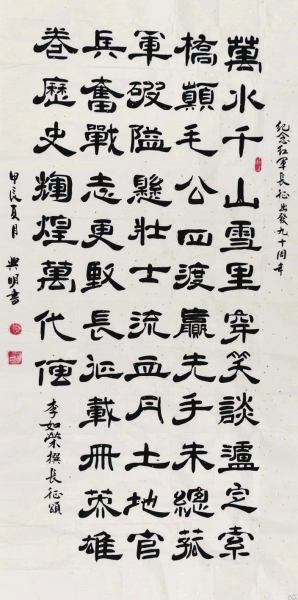 紀念紅軍長征出發九十周年
萬水千山雪里穿笑談瀘定索
橋顛毛公四渡贏先手朱總菰
軍破隘懸壯士流血丹土地官
兵奮戰志更堅長征載冊英雄
卷歷史輝煌萬代傳
李如榮撰長征頌
甲辰夏月 興明書